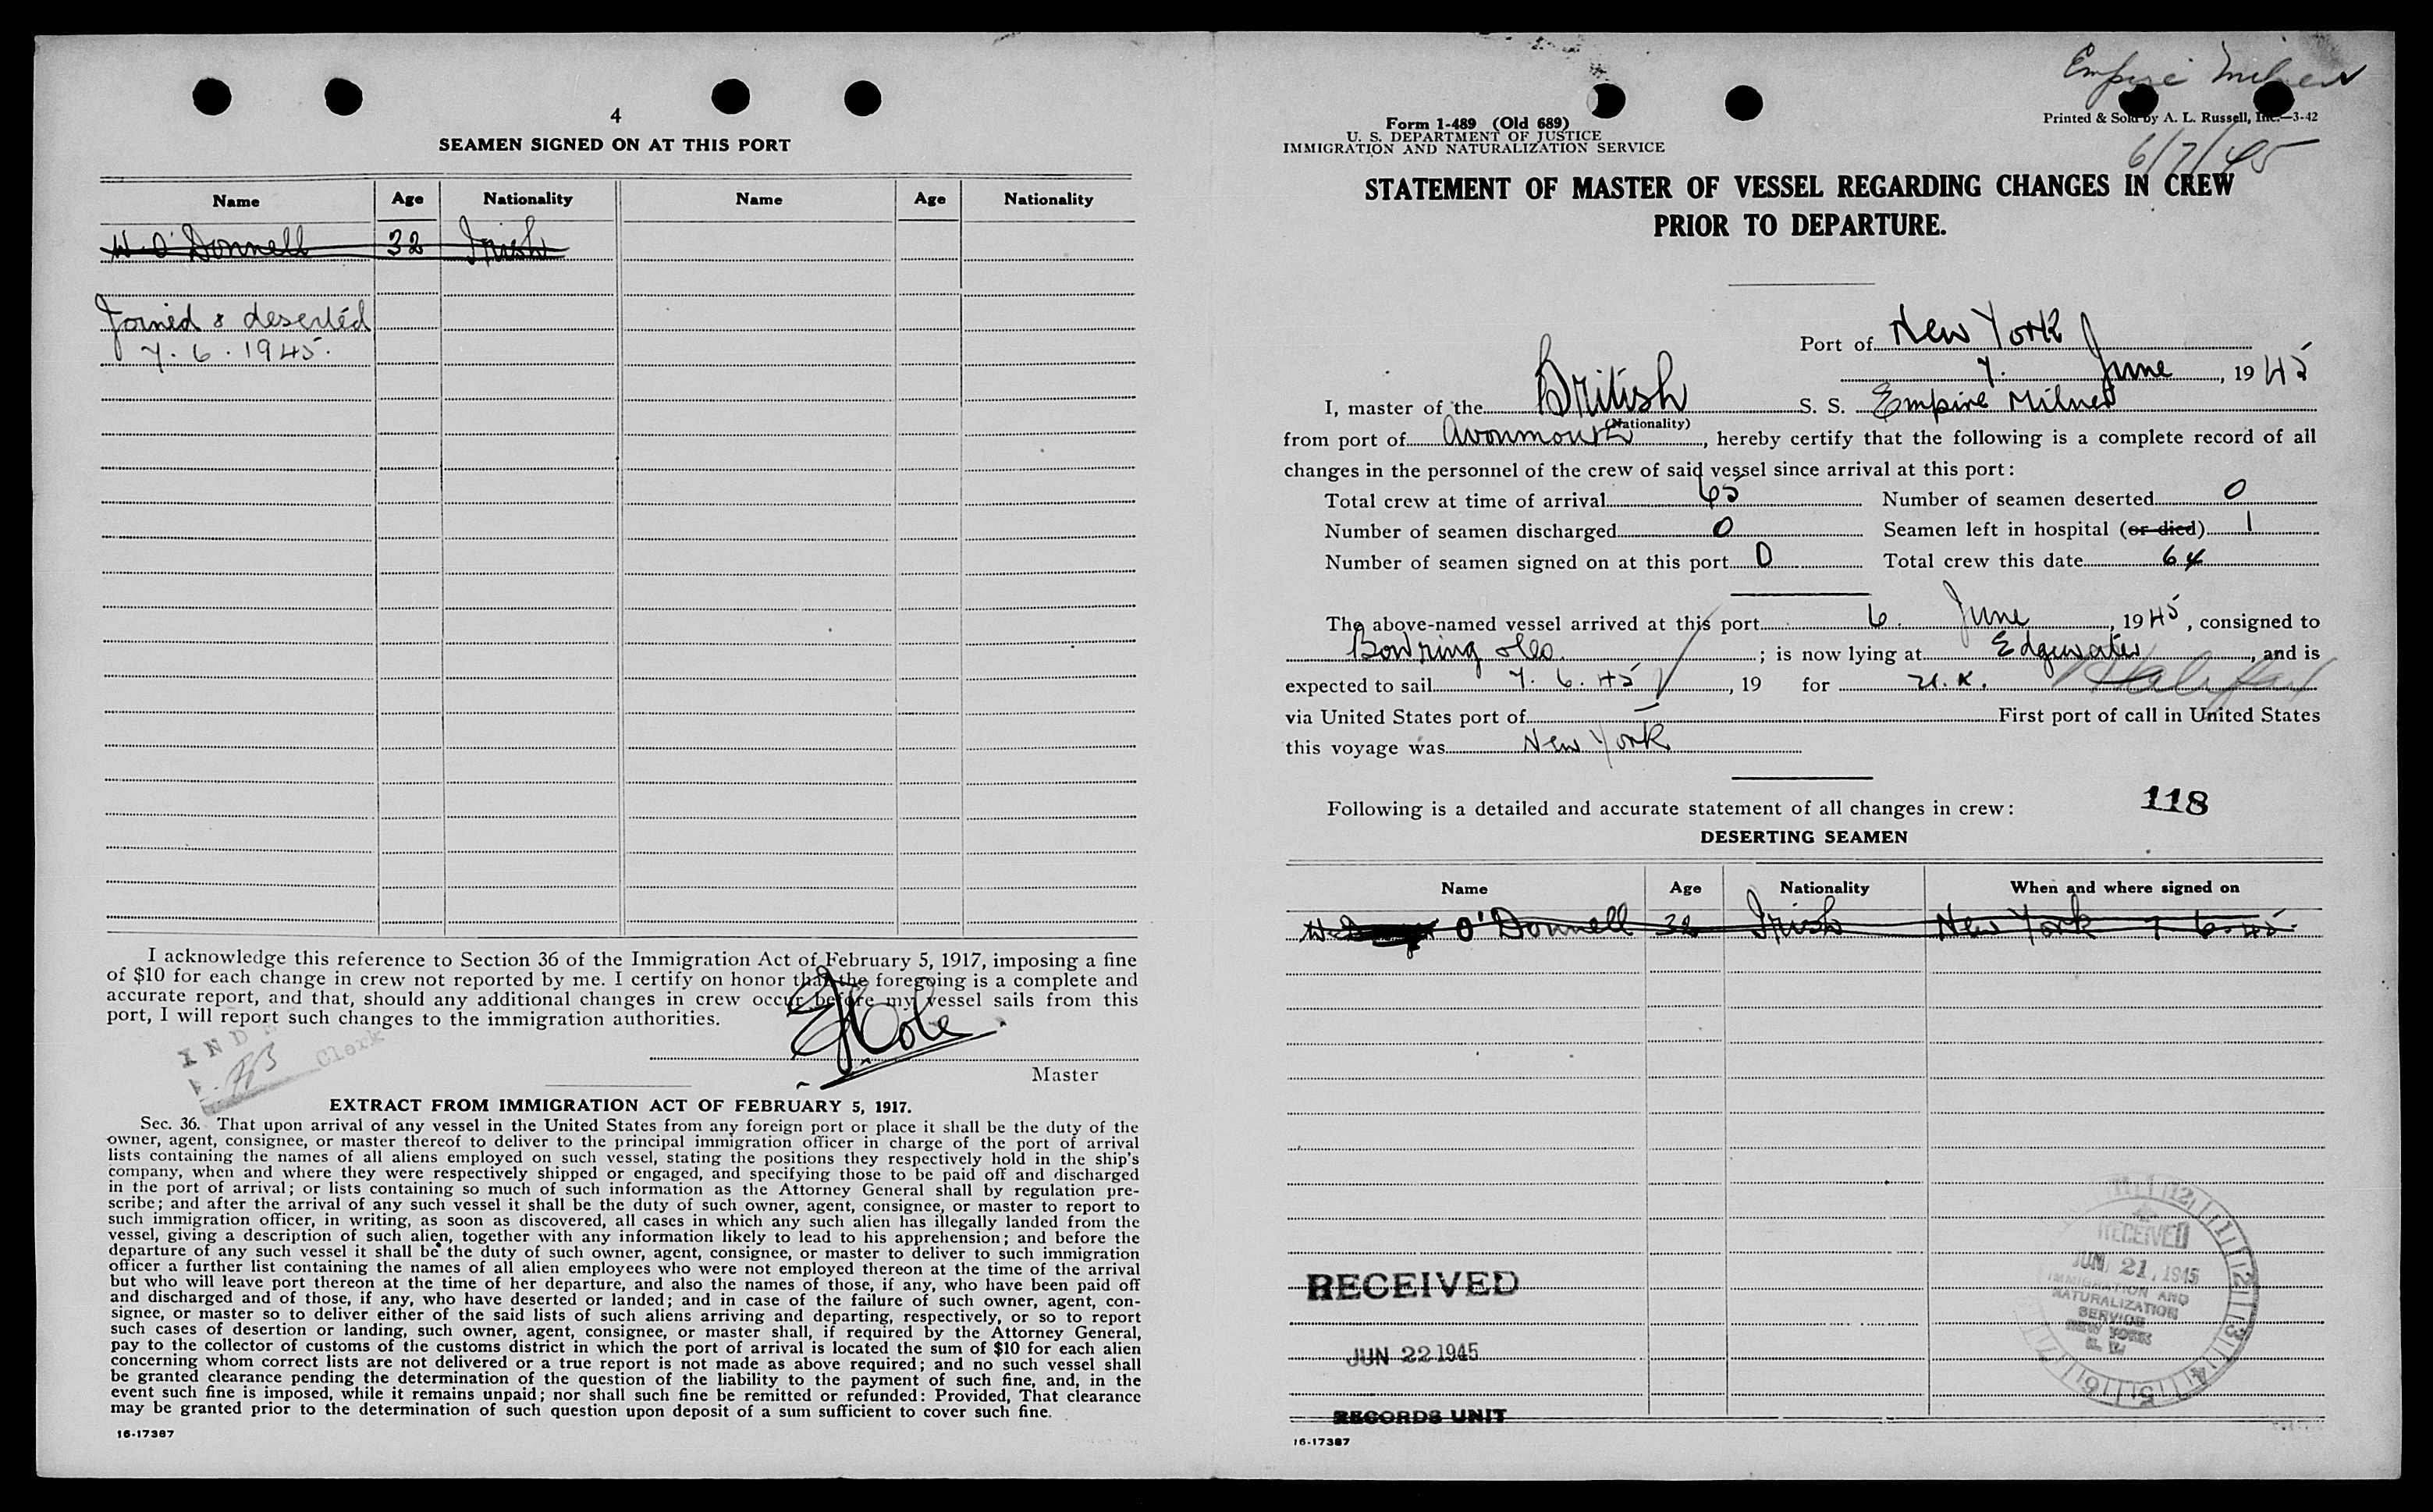 4
SEAMEN SIGNED ON AT THIS PORT
Name Age Nationality Name Age Nationality
W O'Donnell 32 Irish
Joined & deserted
7. 6. 1945.
I acknowledge this reference to Section 36 of the Immigration Act of February 5, 1917, imposing a fine
of $10 for each change in crew not reported by me. I certify on honor that the foregoing is a complete and
accurate report, and that, should any additional changes in crew occur before my vessel sails from this
port, I will report such changes to the immigration authorities.
Clerk
Cole
Master
EXTRACT FROM IMMIGRATION ACT OF FEBRUARY 5, 1917.
Sec. 36. That upon arrival of any vessel in the United States from any foreign port or place it shall be the duty of the
owner, agent, consignee, or master thereof to deliver to the principal immigration officer in charge of the port of arrival
lists containing the names of all aliens employed on such vessel, stating the positions they respectively hold in the ship's
company, when and where they were respectively shipped or engaged, and specifying those to be paid off and discharged
in the port of arrival; or lists containing so much of such information as the Attorney General shall by regulation pre-
scribe; and after the arrival of any such vessel it shall be the duty of such owner, agent, consignee, or master to report to
such immigration officer, in writing, as soon as discovered, all cases in which any such alien has illegally landed from the
vessel, giving a description of such alien, together with any information likely to lead to his apprehension; and before the
departure of any such vessel it shall be the duty of such owner, agent, consignee, or master to deliver to such immigration
officer a further list containing the names of all alien employees who were not employed thereon at the time of the arrival
but who will leave port thereon at the time of her departure, and also the names of those, if any, who have been paid off
and discharged and of those, if any, who have deserted or landed; and in case of the failure of such owner, agent, con-
signee, or master so to deliver either of the said lists of such aliens arriving and departing, respectively, or so to report
such cases of desertion or landing, such owner, agent, consignee, or master shall, if required by the Attorney General,
pay to the collector of customs of the customs district in which the port of arrival is located the sum of $10 for each alien
concerning whom correct lists are not delivered or a true report is not made as above required; and no such vessel shall
be granted clearance pending the determination of the question of the liability to the payment of such fine, and, in the
event such fine is imposed, while it remains unpaid; nor shall such fine be remitted or refunded: Provided, That clearance
may be granted prior to the determination of such question upon deposit of a sum sufficient to cover such fine.
16-17387
Empire Milner
Form 1-489 (Old 689)
U. S. DEPARTMENT OF JUSTICE
IMMIGRATION AND NATURALIZATION SERVICE
Printed & Sold by A. L. Russell, Inc.—3-42
6/7/45
STATEMENT OF MASTER OF VESSEL REGARDING CHANGES IN CREW
PRIOR TO DEPARTURE.
Port of New York
7. June, 1945
I, master of the British S. S. Empire Milner
(Nationality)
from port of Avonmouth, hereby certify that the following is a complete record of all
changes in the personnel of the crew of said vessel since arrival at this port:
Total crew at time of arrival 65 Number of seamen deserted 0
Number of seamen discharged 0 Seamen left in hospital (or died) 1
Number of seamen signed on at this port 0 Total crew this date 64
The above-named vessel arrived at this port 6. June, 1945, consigned to
Bowring & Co.; is now lying at Edgewater, and is
expected to sail 7. 6. 45, 19 for U.K. Halifax
via United States port of — First port of call in United States
this voyage was New York
Following is a detailed and accurate statement of all changes in crew: 118
DESERTING SEAMEN
Name Age Nationality When and where signed on
W O'Donnell 32 Irish New York 7 6.45.
RECEIVED
JUN 22 1945
RECORDS UNIT
RECEIVED
JUN 21, 1945
IMMIGRATION AND
NATURALIZATION
SERVICE
NEW YORK
16-17387